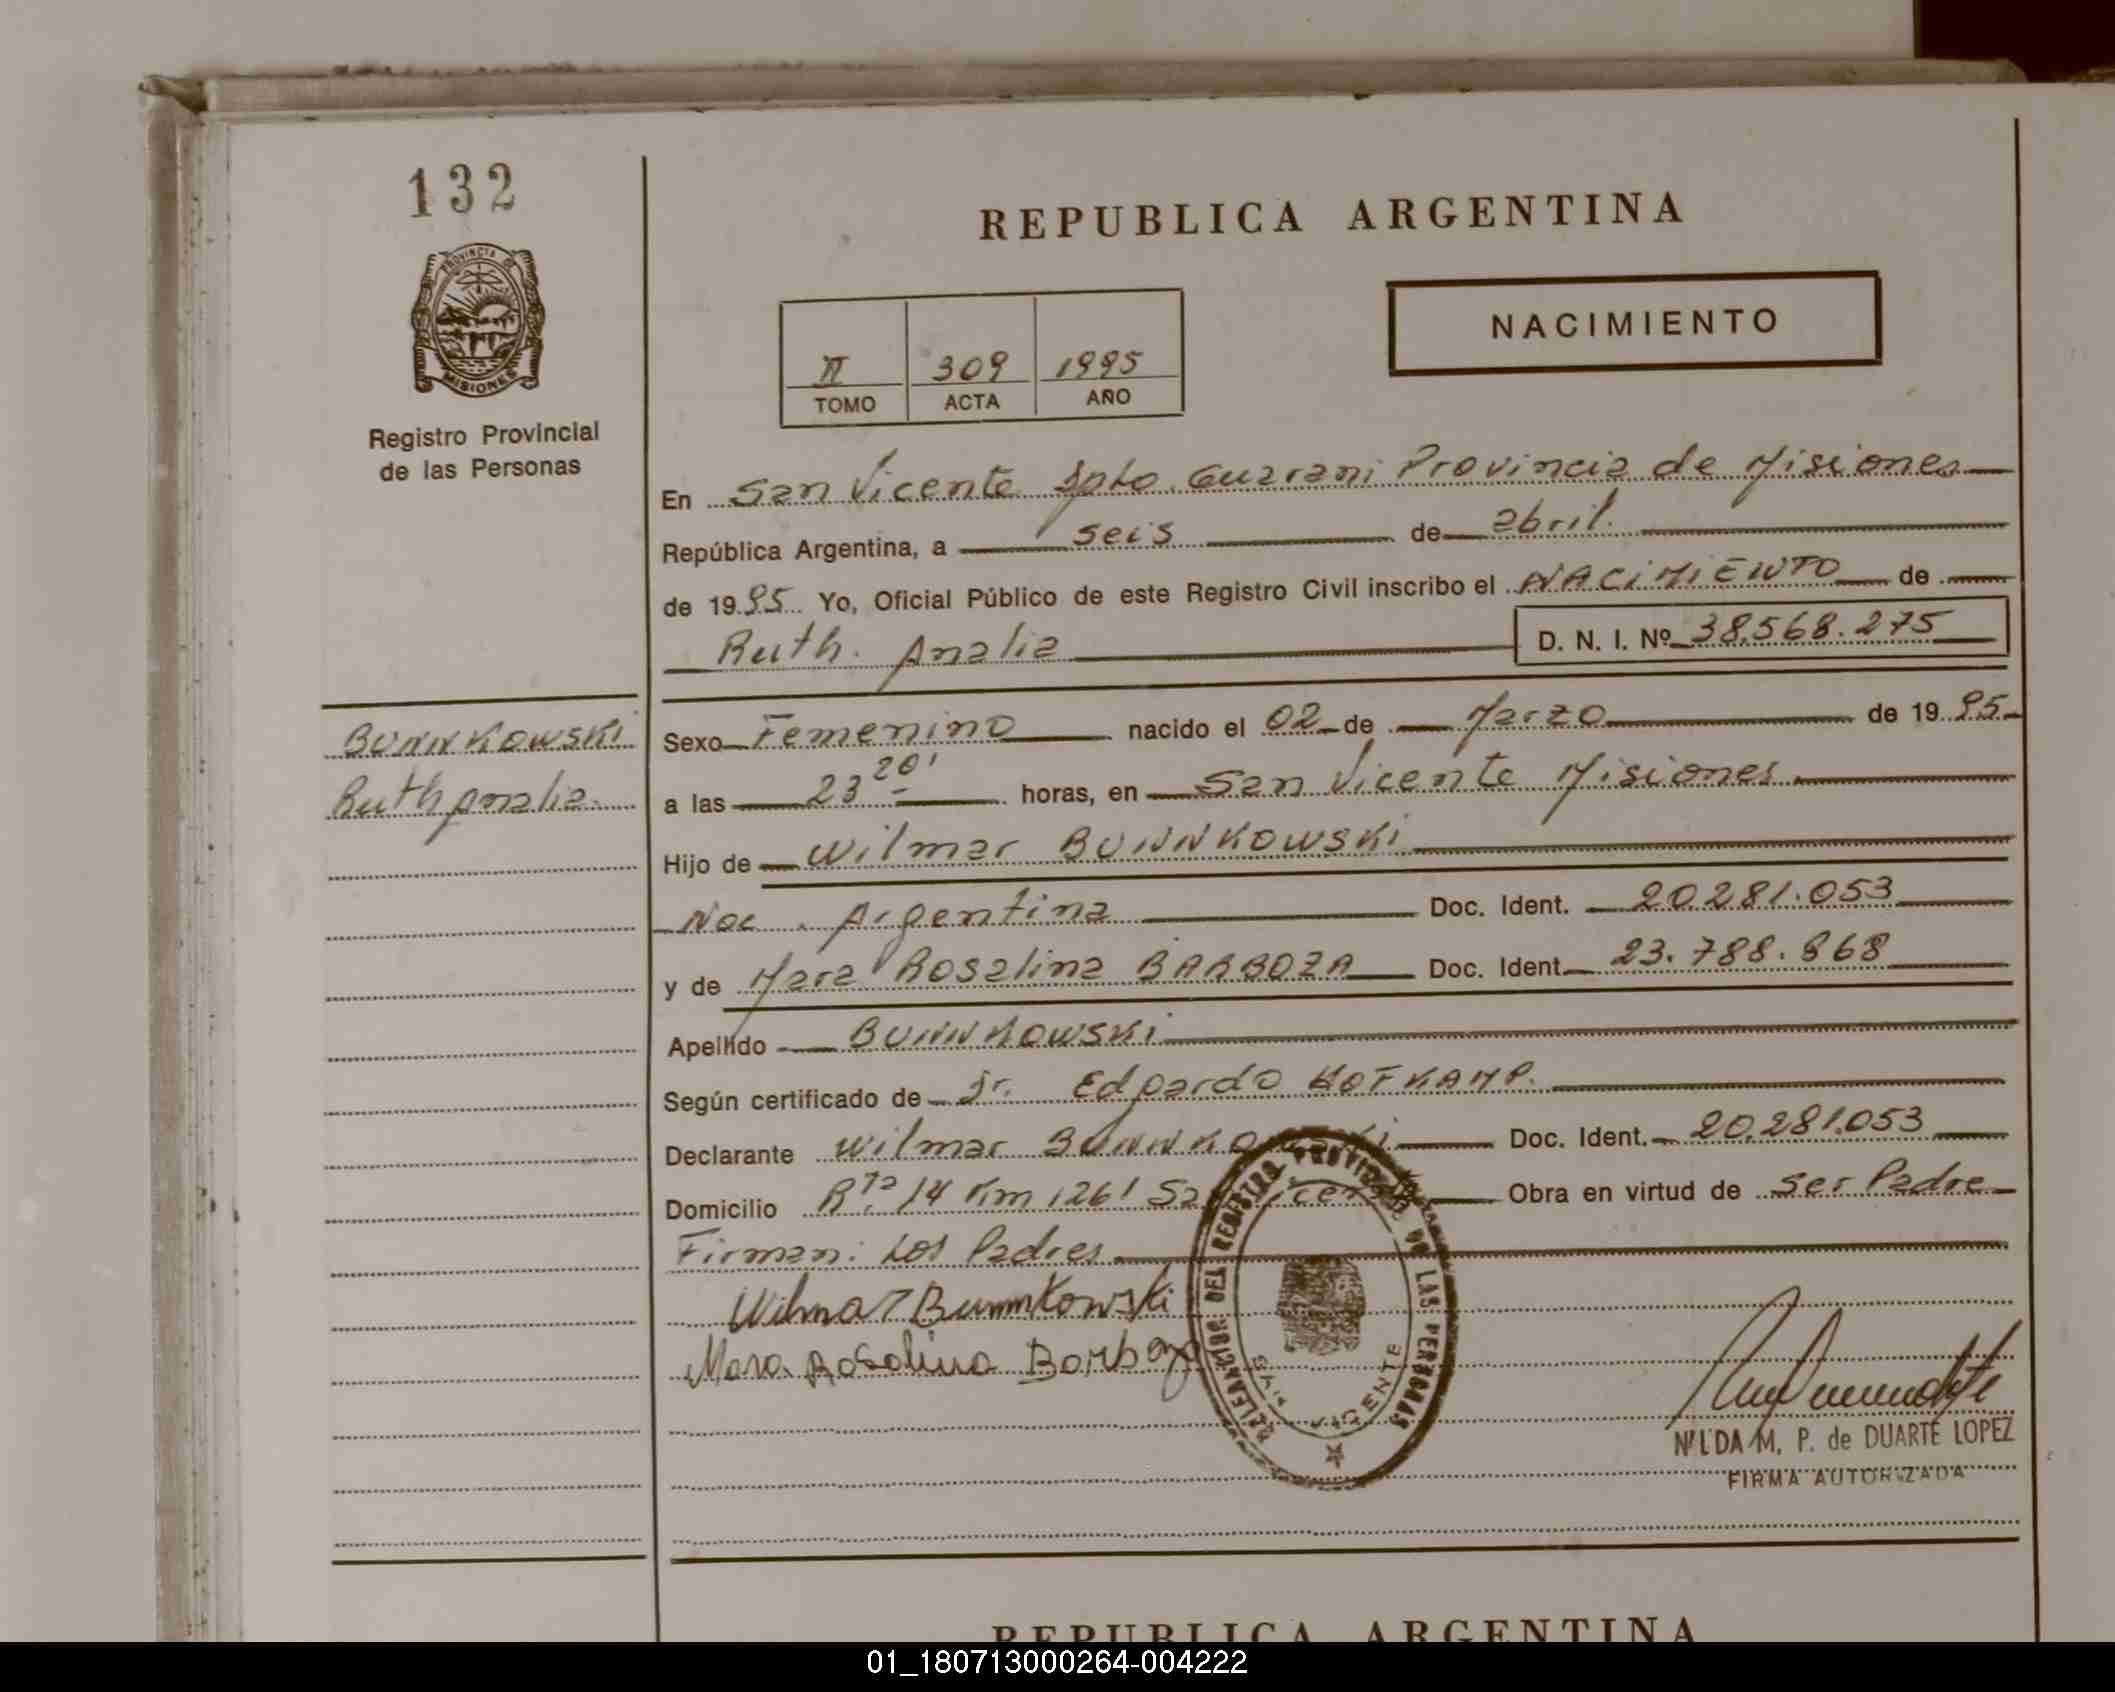 132
PROVINCIA DE
MISIONES
Registro Provincial
de las Personas
REPUBLICA ARGENTINA
NACIMIENTO
II 309 1995
TOMO ACTA AÑO
En San Vicente Dpto. Guarani Provincia de Misiones
República Argentina, a seis de abril.
de 1995 Yo, Oficial Público de este Registro Civil inscribo el NACIMIENTO de
Ruth. Analia D. N. I. Nº 38.568.275
BUNNKOWSKi
Ruth Analia
Sexo Femenino nacido el 02 de Marzo de 1995
a las 23 20' horas, en San Vicente Misiones
Hijo de Wilmar BUNNKOWSKi
Nac. Argentina Doc. Ident. 20.281.053
y de Mara Rosalina BARBOZA Doc. Ident. 23.788.868
Apellido BUNNKOWSKi
Según certificado de Dr. Edgardo HOFKAMP.
Declarante Wilmar BUNNKOWSKi Doc. Ident. 20.281.053
Domicilio Rta. 14 Km 1261 San Vicente Obra en virtud de ser Padre
Firman: Los Padres
Wilmar Bunnkowski
Mara Rosalina Barboza
DELEGACION DEL REGISTRO PROVINCIAL DE LAS PERSONAS
SAN VICENTE
NILDA M. P. de DUARTE LOPEZ
FIRMA AUTORIZADA
REPUBLICA ARGENTINA
01_180713000264-004222